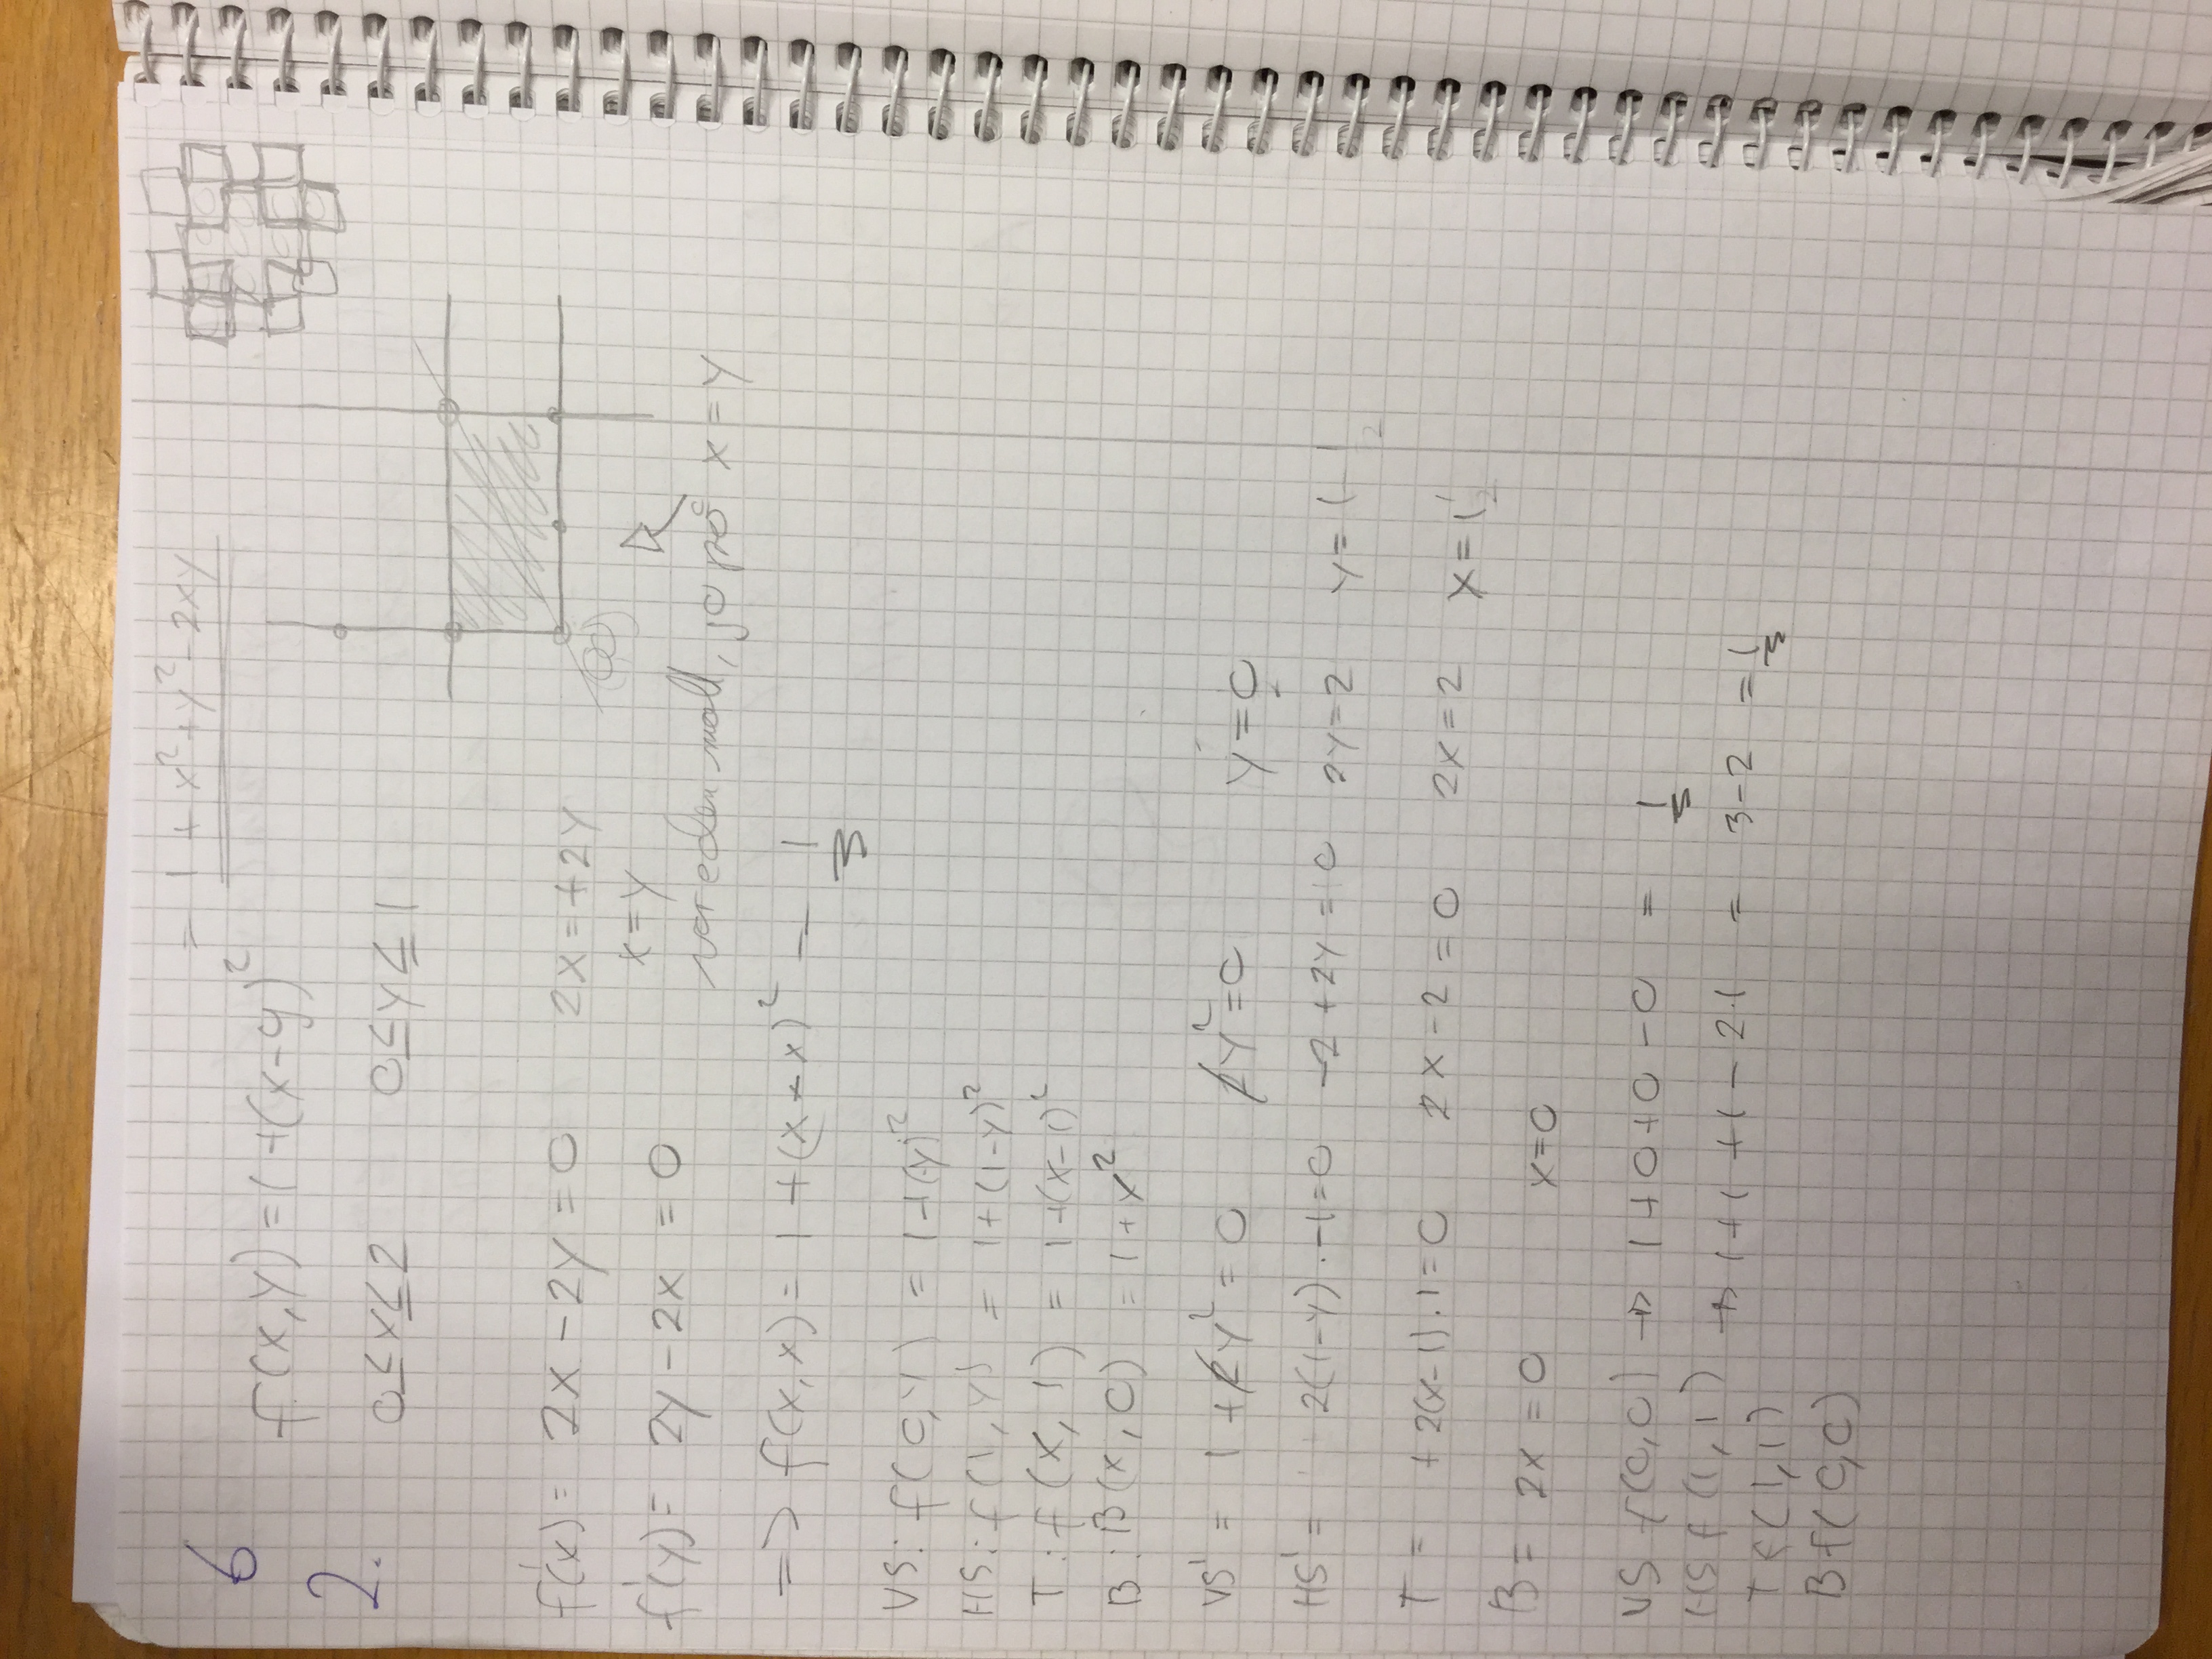 = 1 + x² + y² - 2xy
6
f(x,y) = 1 + (x-y)²
2.
0≤x≤2 0≤y≤1
f'(x) = 2x - 2y = 0 2x = +2y
x = y
f'(y) = 2y - 2x = 0
jo på x = y
=> f(x,x) = 1 + (x-x)² = 1
VS: f(0,y) = 1+(-y)²
HS: f(1,y) = 1+(1-y)²
T: f(x,1) = 1+(x-1)²
B: B(x,0) = 1+x²
VS' = 1 + 2y² = 0 2y² = 0 y = 0
HS' = 2(1-y)·-1=0 -2+2y = 0 2y = 2 y = 1
T = +2(x-1)·1=0 2x-2 = 0 2x = 2 x = 1
B = 2x = 0 x=0
VS f(0,0) → 1+0+0-0 = 1
HS f(1,1) → 1+1+1-2·1 = 3-2 = 1
T f(1,1)
B f(0,0)